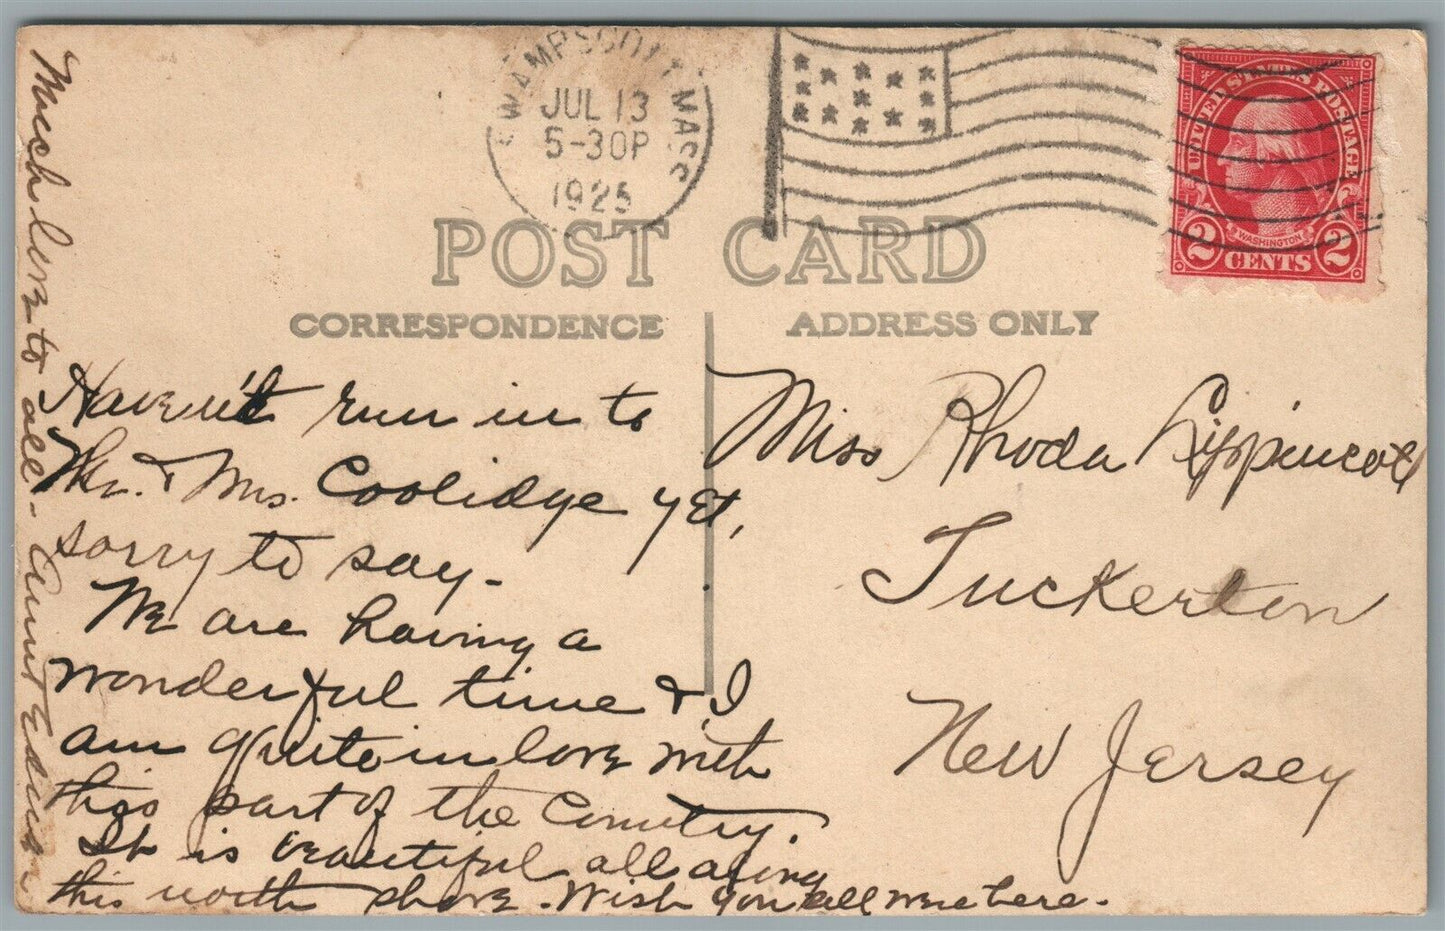 SWAMPSCOTT MASS
JUL 13
5-30P
1925
UNITED STATES POSTAGE
WASHINGTON
2 CENTS 2
POST CARD
CORRESPONDENCE
ADDRESS ONLY
Haven't run in to
Mr. & Mrs. Coolidge yet,
sorry to say-
We are having a
wonderful time & I
am quite in love with
this part of the Country.
It is beautiful all along
this north shore. Wish you all were here.
Much love to all - Aunt Edwina
Miss Rhoda Lippincott
Tuckerton
New Jersey